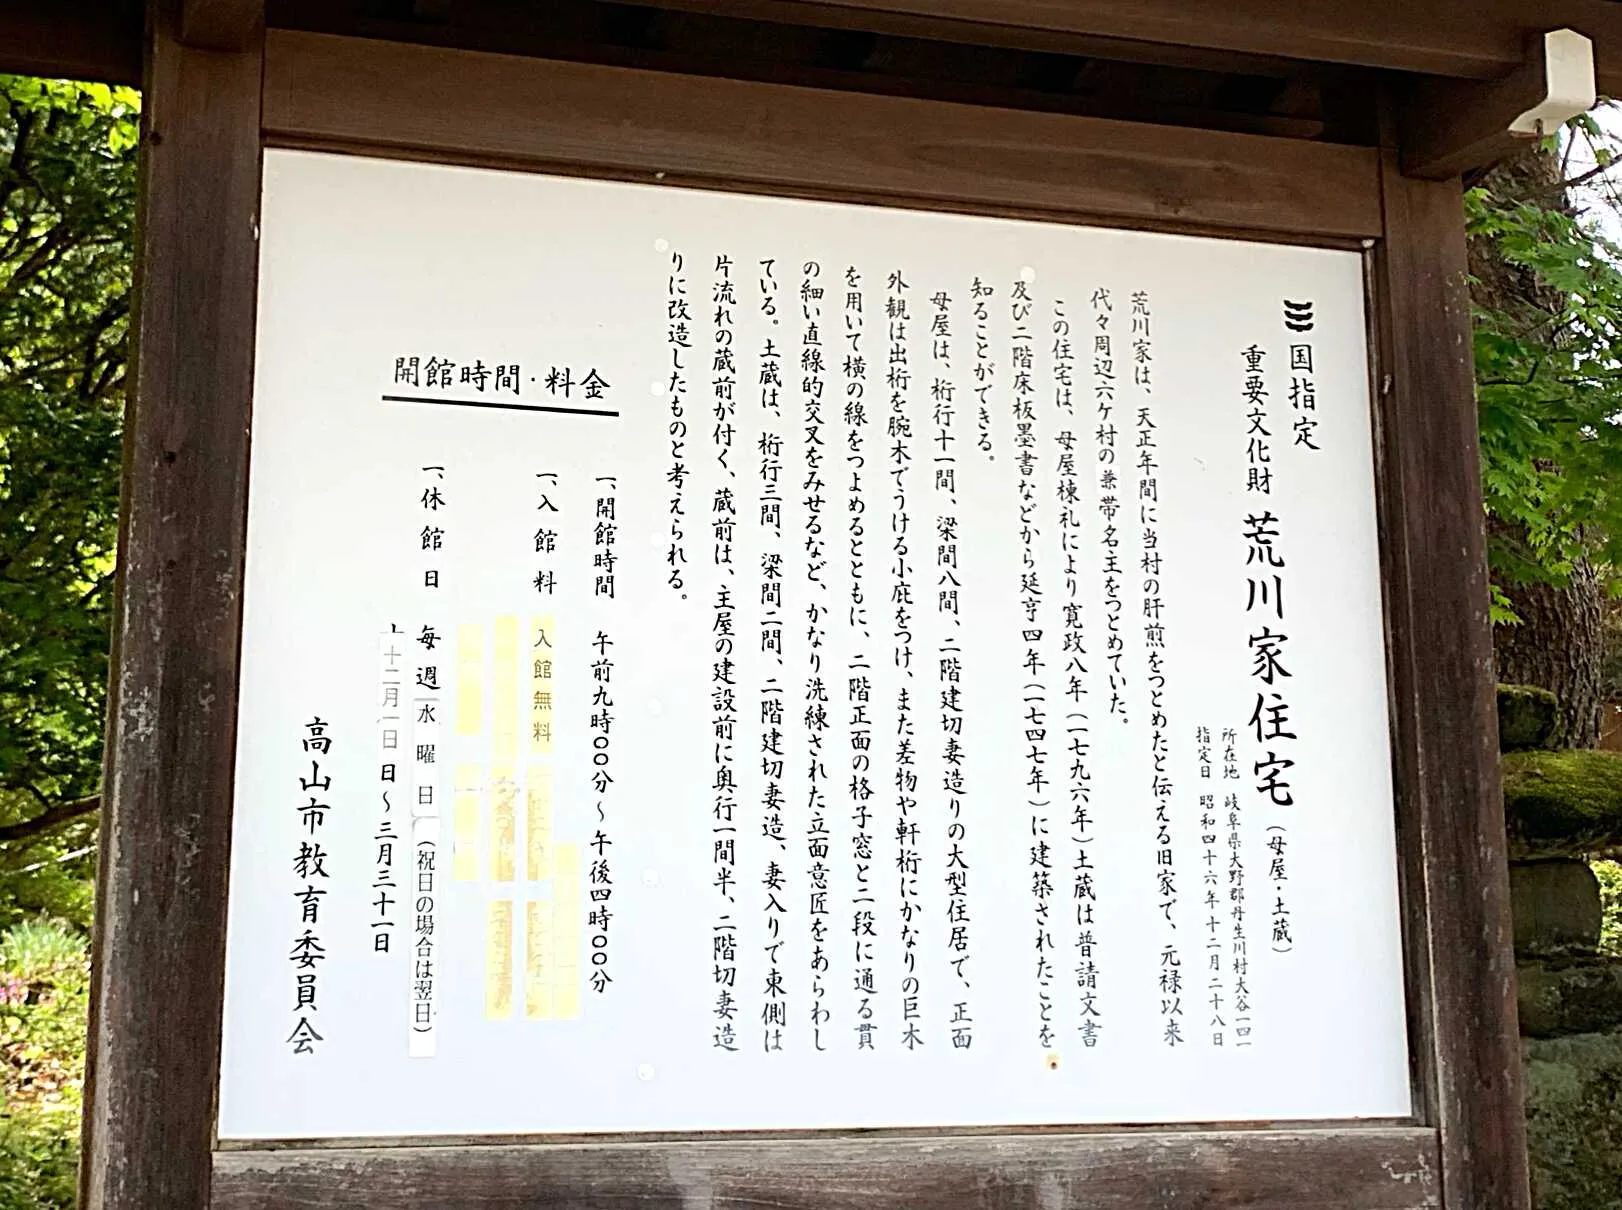 国指定
重要文化財 荒川家住宅（母屋・土蔵）
所在地 岐阜県大野郡丹生川村大谷一四一
指定日 昭和四十六年十二月二十八日
荒川家は、天正年間に当村の肝煎をつとめたと伝える旧家で、元禄以来
代々周辺六ケ村の兼帯名主をつとめていた。
この住宅は、母屋棟札により寛政八年（一七九六年）土蔵は普請文書
及び二階床板墨書などから延享四年（一七四七年）に建築されたことを
知ることができる。
母屋は、桁行十一間、梁間八間、二階建切妻造りの大型住居で、正面
外観は出桁を腕木でうける小庇をつけ、また差物や軒桁にかなりの巨木
を用いて横の線をつよめるとともに、二階正面の格子窓と二段に通る貫
の細い直線的交叉をみせるなど、かなり洗練された立面意匠をあらわし
ている。土蔵は、桁行三間、梁間二間、二階建切妻造、妻入りで東側は
片流れの蔵前が付く、蔵前は、主屋の建設前に奥行一間半、二階切妻造
りに改造したものと考えられる。
開館時間・料金
一、開館時間 午前九時〇〇分～午後四時〇〇分
一、入館料 入館無料
一、休館日 毎週水曜日（祝日の場合は翌日）
十二月一日 日～三月三十一日
高山市教育委員会